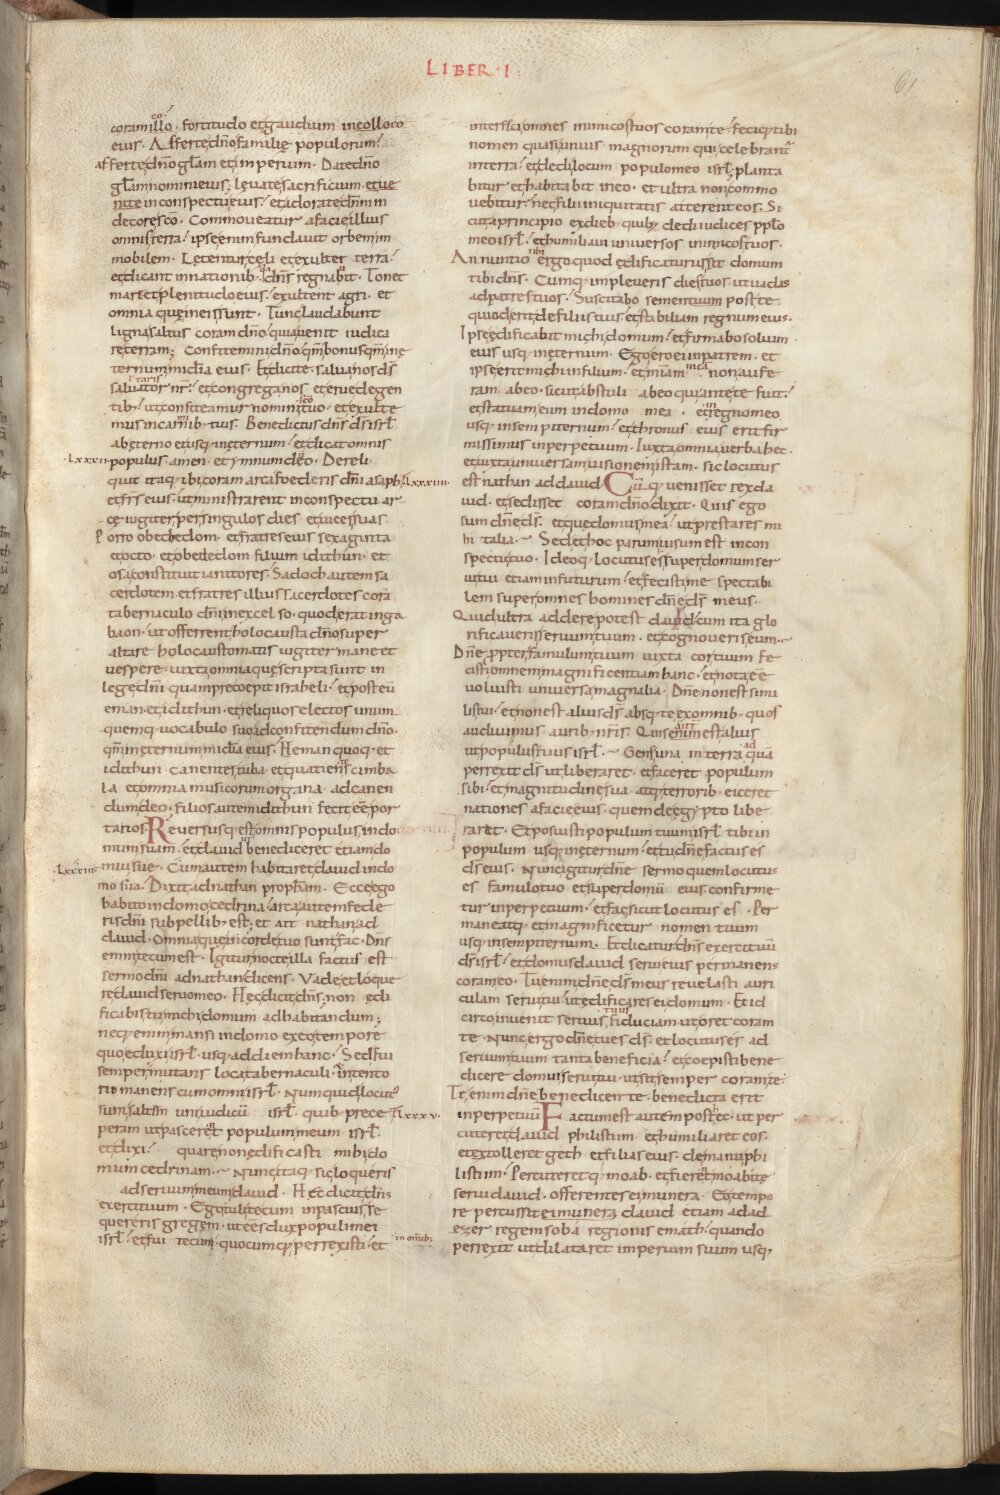 LIBER · I ·
61
coram illo eo · fortitudo et gaudium in eolloco
eius · Afferte dn̄o familię populorum ·
afferte dn̄o gl̄am et imperium · Date dn̄o
gl̄am nomini eius ; leuate sacrificium · et ue
nite in conspectu eius · et adorate dn̄m in
decore sc̄o · Commoueatur a facie illius
omnis terra · ipse enim fundauit orbem im
mobilem · Lętentur cęli et exultet terra ·
et dicant in nationib; dn̄s regnabit · Tonet
mare et plenitudo eius · exultent agri · et
omnia quę in eis sunt · Tunc laudabunt
ligna saltus coram dn̄o · quia uenit iudica
re terram ; Confitemini dn̄o qm̄ bonus qm̄ in ę
ternum mīcd̄ia eius · Et dicite · salua nos d̄s
saluator taris nr̄ · et congrega nos et erue de gen
tib; ut confiteamur nomini sc̄o tuo · et exulte
mus in carminib; tuis · Benedictus dn̄s d̄s isrl̄
ab ęterno et usq; in ęternum · et dicat omnis
· Lxxxii · populus · amen · et ymnum dēo · Dereli
quit itaq; ibi coram arca foederis dn̄i asaph
et fr̄s eius · ut ministrarent in conspectu ar
cę iugiter per singulos dies et uices suas ·
Porro obededom · et fratres eius sexaginta
et octo · et obededom filium idithun · et
osa constituit ianitores · Sadoch autem sa
cerdotem et fratres illius sacerdotes corā
tabernaculo dn̄i in excelso · quod erat in ga
baon · ut offerrent holocausta dn̄o super
altare holocaustomatis iugiter mane et
uespere · iuxta omnia quę scripta sunt in
lege dn̄i quam precoepit israheli · et post eū
eman · et idithun · et reliquos electos unum
quemq; uocabulo suo ad confitendum dn̄o ·
qm̄ in ęternum mīcd̄ia eius · Heman quoq; et
idithun canentes tuba · et quatiens cimba
la et omnia musicorum organa · ad canen
dum dēo · filios autem idithun fecit eē por
tarios · Reuersusq; est omnis populus in do
mum suam · et dauid ut benediceret etiam do
· Lxxxiii · mui suę · Cum autem habitaret dauid in do
mo sua · Dixit ad nathan proph̄am · Ecce ego
habito in domo cedrina · arca autem fede
ris dn̄i sub pellib; est ; et ait nathan ad
dauid · Omnia quę in corde tuo sunt fac · Dn̄s
enim tecum est · Igitur nocte illa factus est
sermo dn̄i ad nathan dicens · Vade et loque
re dauid seruo meo · Hęc dicit dn̄s · non ędi
ficabis tu michi domum ad habitandum ;
neq; enim mansi in domo ex eo tempore
quo eduxi isrl̄ · usq; ad diem hanc · Sed fui
semper mutans loca tabernaculi · in tento
rio manens cum omni isrl̄ · Numquid locut;
sum saltim uni iudicū isrl̄ · quib; prece
peram ut pasceret populum meum isrl̄
et dixi · quare non ędificasti mihi do
mum cedrinam · Nunc itaq; sic loqueris
ad seruum meum dauid · Hęc dicit dn̄s
exercituum · Ego tuli te cum in pascuis se
quereris gregem · ut eēs dux populi mei
isrl̄ · et fui tecum · quocumq; perrexisti · et in omīb;
interfeci omnes inimicos tuos coram te · feciq; tibi
nomen quasi unius magnorum qui celebrant̄
in terra · et dedi locum populo meo isrl̄ · planta
bitur et habitabit in eo · et ultra non commo
uebitur · nec filii iniquitatis atterent eos · Si
cut a principio ex dieb; quib; dedi iudices pp̄lo
meo isrl̄ · et humiliaui uniuersos inimicos tuos ·
Annuntio tibi ergo quod ędificaturus sit domum
tibi dn̄s · Cumq; impleueris dies tuos · ut uadas
ad patres tuos · Suscitabo semen tuum post te ·
quod erit de filiis tuis et stabiliam regnum eius ·
Ipse ędificabit michi domum · et firmabo solium
eius usq; in ęternum · Ego ero ei in patrem · et
ipse erit mich in filium · et mīam mea non aufe
ram ab eo · sicut abstuli ab eo qui ante te fuit ·
et statuam eum in domo mea · et in regno meo
usq; in sempiternum · et thronus eius erit fir
missimus in perpetuum · Iuxta omnia uerba hęc ·
et iuxta uniuersam uisionem istam · sic locutus
· Lxxxiiii · est nathan ad dauid · Cūq; uenisset rex da
uid · et sedisset coram dn̄o · dixit · Quis ego
sum dn̄e d̄s · et quę domus mea · ut prestares mi
hi talia · Sed et hoc parum uisum est in con
spectu tuo · Ideoq; locutus es super domum ser
ui tui etiam in futurum · et fecisti me spectabi
lem super omnes homines dn̄e d̄s meus ·
Quid ultra addere potest dauid · cum ita glo
rificaueris seruum tuum · et cognoueris eum ·
Dn̄e propter famulum tuum iuxta cor tuum fe
cisti omnem magnificentiam hanc · et nota eē
uoluisti uniuersa magnalia · Dn̄e non est simi
lis tui · et non est alius d̄s absq; te ex omnib; quos
audiuimus aurib; nr̄is · Quis enim aut̄ est alius
ut populus tuus isrl̄ · Gens una in terra ad quā
perrexit d̄s ut liberaret · et faceret populum
sibi · et magnitudine sua atq; terrorib; eiceret
nationes a facie eius · quem de ęgypto libe
raret · Et posuisti populum tuum isrl̄ tibi in
populum usq; in ęternum · et tu dn̄e factus es
d̄s eius · Nunc igitur dn̄e sermo quem locutus
es famulo tuo et super domū eius confirme
tur in perpetuum · et fac sicut locutus es · Per
maneatq; et magnificetur nomen tuum
usq; in sempiternum · Et dicatur dn̄s exercituū
d̄s isrl̄ · et domus dauid serui eius permanens
coram eo · Tu enim dn̄e d̄s meus reuelasti auri
culam serui tui · ut ędificares ei domum · Et id
circo inuenit seruus tuus fiduciam ut oret coram
te · Nunc ergo dn̄e tu es d̄s · et locutus es ad
seruum tuum tanta beneficia · et coepisti bene
dicere domui serui tui · ut sit semper coram te ·
Te enim dn̄e benedicente · benedicta erit
· Lxxxv · in perpetuū · Factum est autem post hęc · ut per
cuteret dauid philistiim et humiliaret eos ·
et tolleret geth et filias eius de manu phi
listiim · Percuteretq; moab · et fierent moabite
serui dauid · offerentes ei munera · Eo tempo
re percussit ei munera dauid etiam adad
ezer regem soba regionis emath · quando
perrexit ut dilataret imperium suum usq;